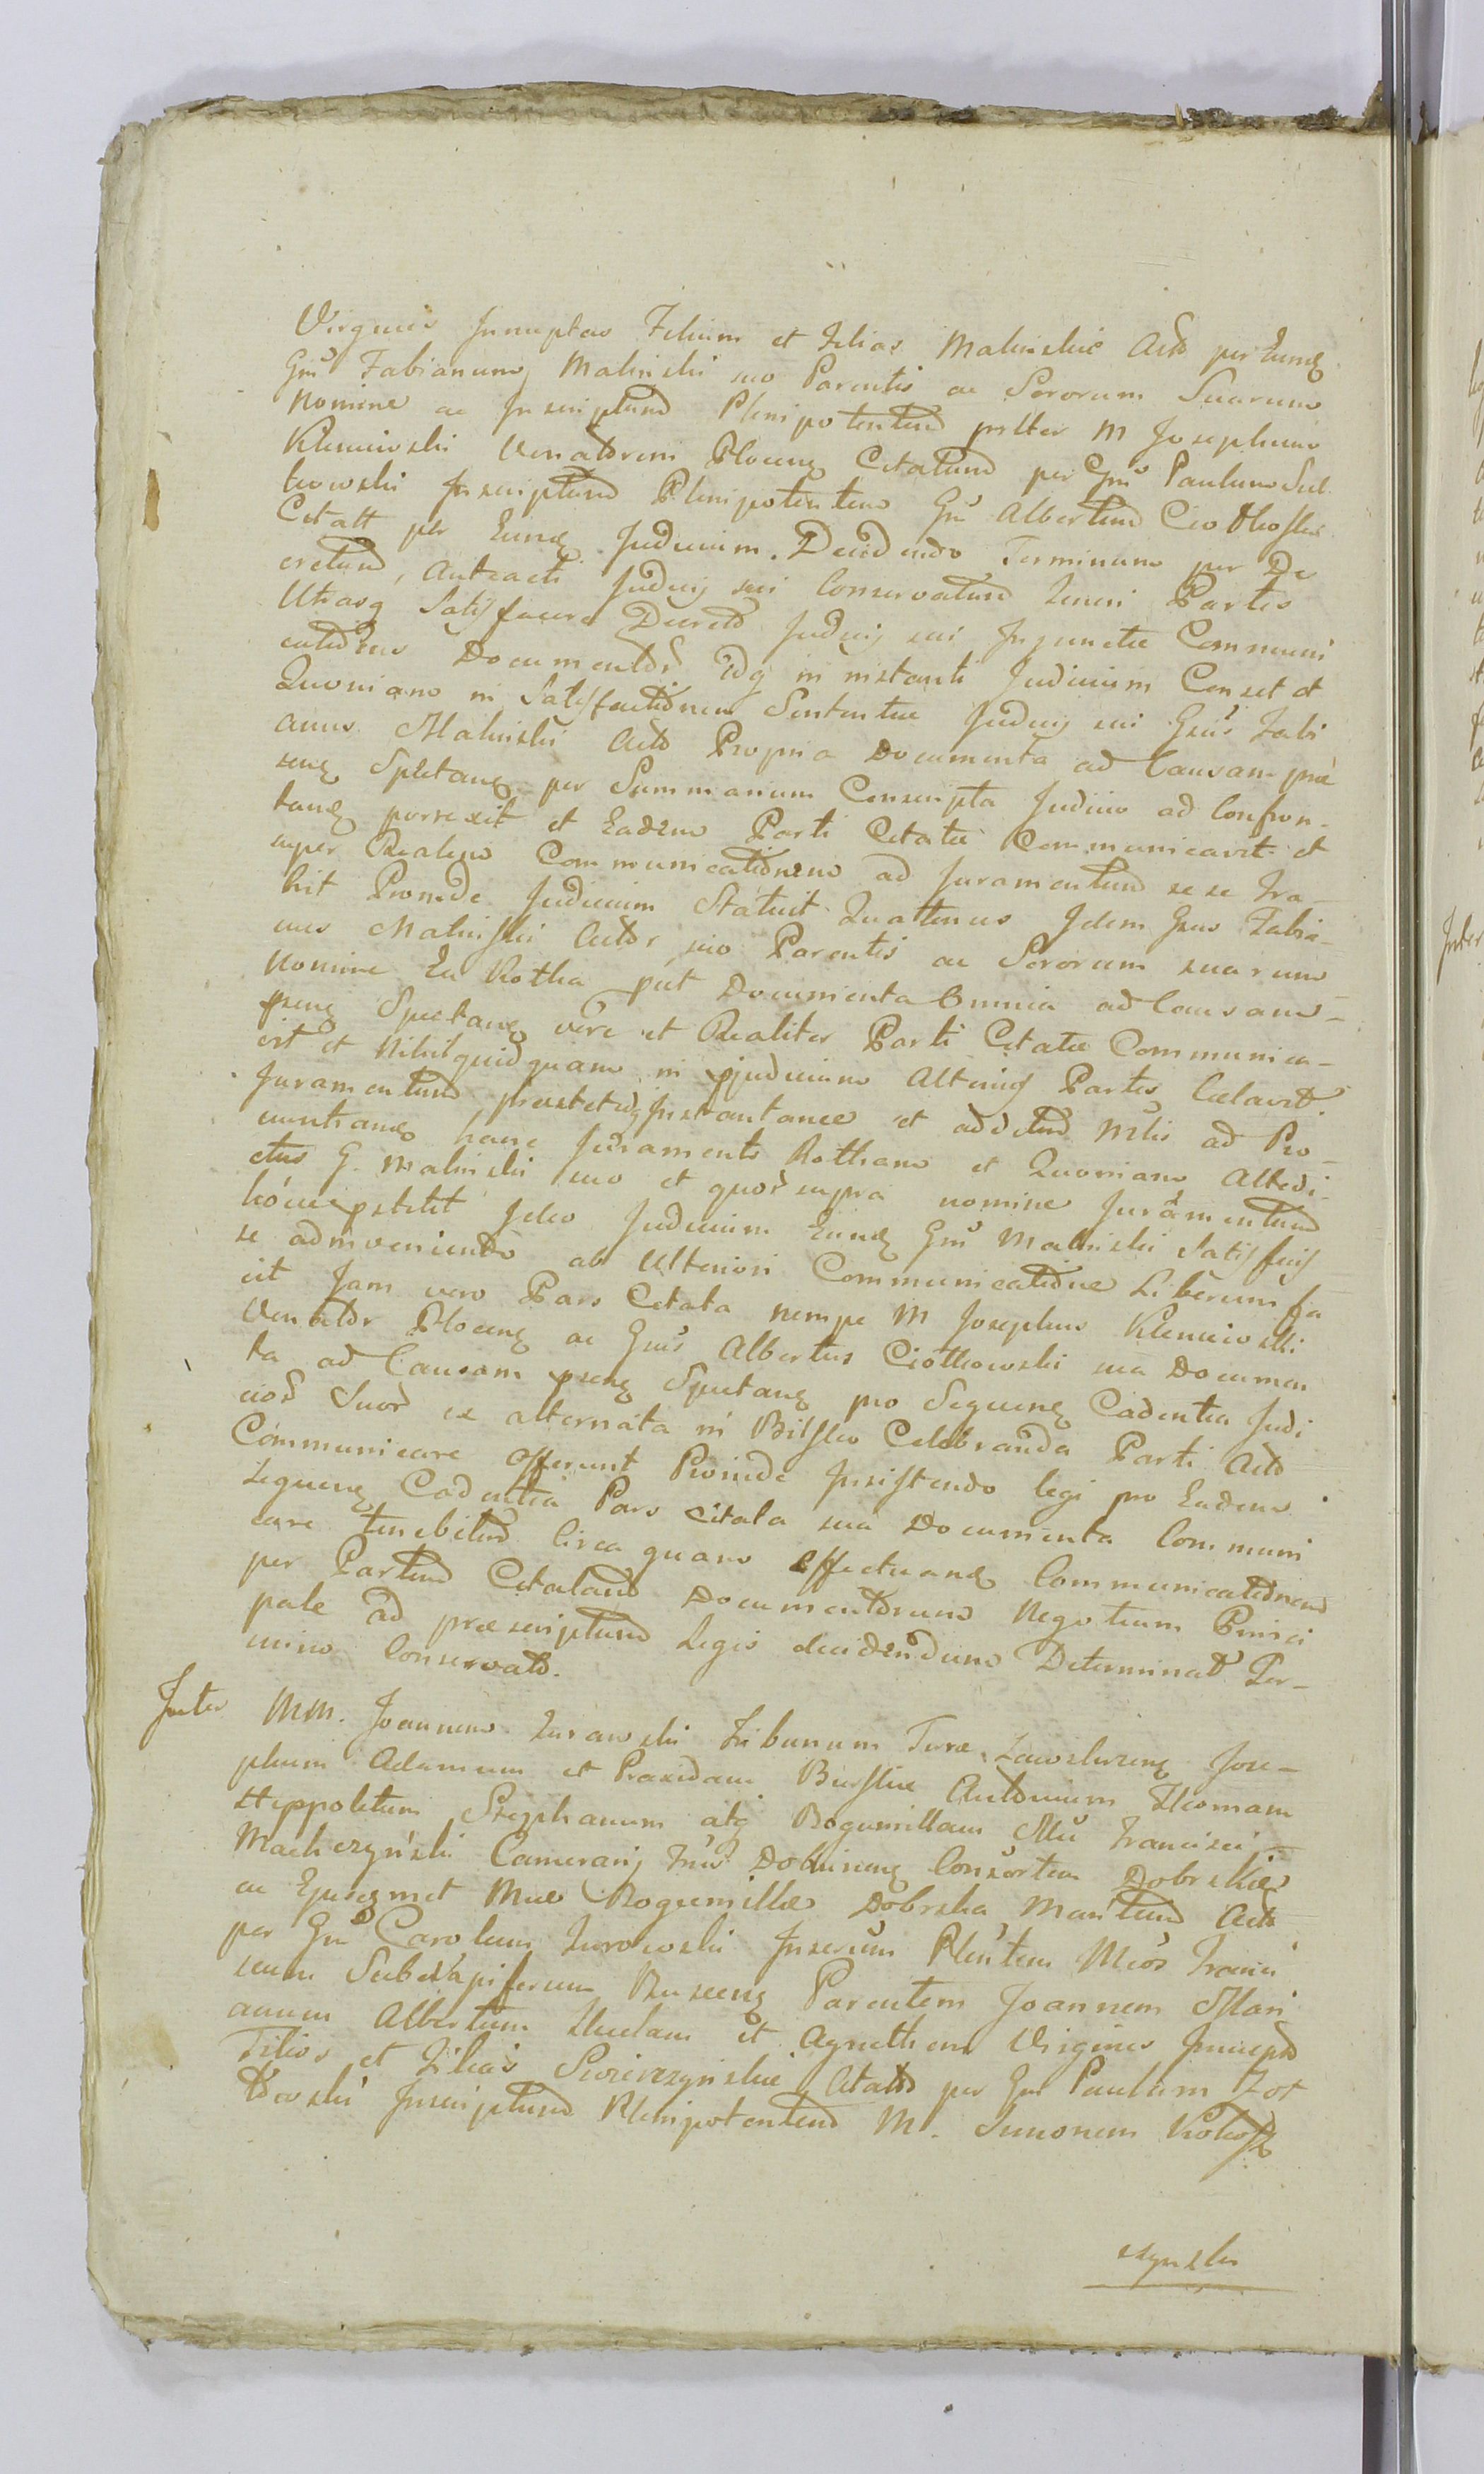 Virgines Innuptas Filium et Filias Malinskie Acto per Eunq
Gnu Fabianum Malinski suo Parentis ac Sororum Suarum
Nomine ac Inscriptum Plenipotentem pstter M Josephum
Kleniewski Venatorem Plocens Citatum per Gnu Paulum Sul
kowski Inscriptum Plenipotentem Gnu Albertum Ciotkoski
Citatt per Eunq Judicium. Decidendo Terminum per De
cretum, Anteacti Judicij sui Conservatum teneri Partes
Utrasq Satisfacere Decreto Judicij sui Injunctae Communi
cationem Documentor idq in instanti Judicium Censet et
Quoniam in Satisfactionem Sententiae Judicij sui Gnus Fabi
anus Malinski Acto Propria Documenta ad Causam prae
senq Spectanq per Summarium Conscripta Judicio ad Confron-
tanq porrexit et Eadem Parti Citatae Communicavit et
super Realem Communicationem ad Juramentum se se tra-
hit Proinde Judicium Statuit Quattenus Idem Gnus Fabia-
nus Malinski Actor suo Parentis ac Sororum suarum
Nomine Ea Rotha put Documenta Omnia ad Causam-
psenq Spectanq vere et Realiter Parti Citatae Communica-
vit et Nihil quidquam in pjudicium Alterius Partis Celavit.
Juramentum praestet Instantanee et addetum Mtis ad Pro-
nunctianq hanc Juramenti Rotham et Quoniam Attedi-
ctus G. Malinski suo et quor supra nomine Juramentum
hocce pstitit Ideo Judicium Eunq Gnu Malinski Satisfecis
se adinveniendo ab Ulteriori Communicatione Liberum fa
cit Jam vero Pars Citata nempe M Josephus Kleniewski
Venator Plocens ac Gnus Albertus Ciotkowski sua Documen
ta ad Causam psenq Spectanq pro Sequenq Cadentia Judi
cior Suor ex alternata in Bilsko Celebranda Parti Acto
Communicare offerunt Proinde Insistendo legi pro Eadem
Sequenq Cadentia Pars Citata sua Documenta Communi
care tenebitur Circa quam Effectuanq Communicationem
per Partem Citatam Documentorum Negotium Princi
pale ad praescriptum Legis decidendum Determinat Ter-
mino Conservato.
Inter MM. Joannem Zurawski Tribunum Terrae Zawskrzenq Jose-
phum Adamum et Praxedam Burskie Antonium Thomam
Hippolitum Stephanum atq Bogumillam Mei Francisci
Machczyński Camerarij Trrae Dobrinenq Consortem Dobrskie
ac Ejusqmet Mae Bogumillae Dobrska Maritum Acto
per Gnu Carolum Zurowski Inscrum Plentem Meos Franci
scum Subdapiferum Rusceenq Parentem Joannem Mari
annum Albertum Theclam et Agnethem Virgines Innupto
Filios et Filias Swierczynskie Citato per Gnu Paulum Zot
towski Inscriptum Plenipotentem M. Simonem
czynski
Inter